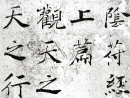 陰符經
上篇
觀天之
天之行